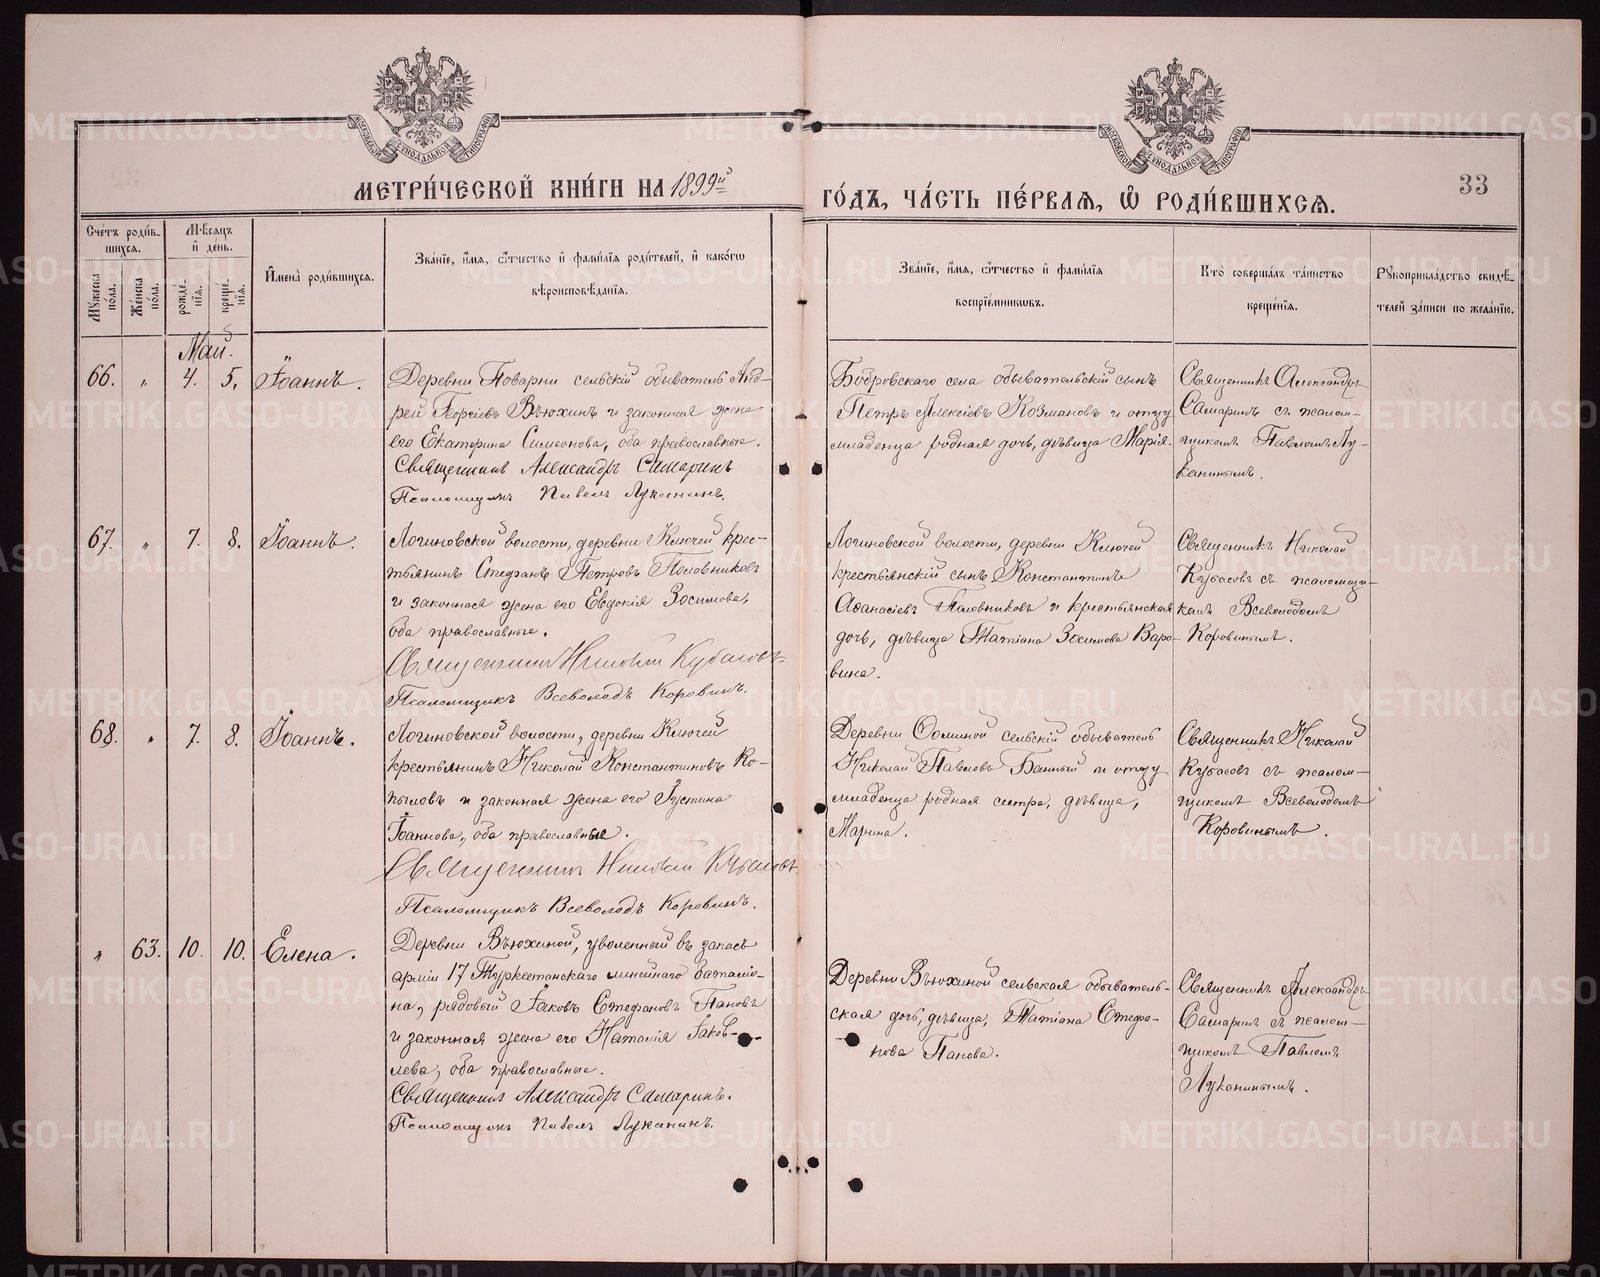 МЕТРИ́ЧЕСКОЙ КНИ́ГИ НА 1899й ГО́ДЪ, ЧА́СТЬ ПЕ́РВАѦ, Ѡ РОДИ́ВШИХСѦ.
33
МОСКОВСКОЙ СѴНОДАЛЬНОЙ ТИПОГРАФІИ
МОСКОВСКОЙ СѴНОДАЛЬНОЙ ТИПОГРАФІИ
Счетъ роди́в-
шихсѧ.
Мѣсѧцъ
и҆ де́нь.
Мꙋжеска по́ла.
Же́нска по́ла.
рожде́-
нїѧ.
креще́-
нїѧ.
И҆мена̀ роди́вшихсѧ.
Зва́нїе, и҆́мѧ, ѻ҆́тчество и҆ фами́лїѧ роди́телей, и҆ како́гѡ
вѣроисповѣ́данїѧ.
Зва́нїе, и҆́мѧ, ѻ҆́тчество и҆ фами́лїѧ
воспрїе́мникѡвъ.
Кто̀ соверша́лъ та́инство
креще́нїѧ.
Рꙋкоприкла́дство свидѣ́-
телей за́писи по жела́нїю.
Май.
66. " 4. 5. Іоаннъ.
Деревни Поварни сельскій обыватель Анд-
рей Георгіевъ Вьюхинъ и законная жена
его Екатерина Симеонова, оба православные.
Священникъ Александръ Самаринъ
Псаломщикъ Павелъ Луканинъ.
Бобровскаго села обывательскій сынъ
Петръ Алексіевъ Козмановъ и отцу
младенца родная дочь, дѣвица Марія.
Священникъ Александръ
Самаринъ съ псалом-
щикомъ Павломъ Лу-
канинымъ.
67. " 7. 8. Іоаннъ.
Логиновской волости, деревни Ключей крес-
тьянинъ Стефанъ Петровъ Половниковъ
и законная жена его Евдокія Зосимова,
оба православные.
Священникъ Николай Кубасовъ
Псаломщикъ Всеволодъ Коровинъ.
Логиновской волости, деревни Ключей
крестьянскій сынъ Константинъ
Аѳанасіевъ Половниковъ и крестьянская
дочь, дѣвица Татіана Зосимова Варо-
вина.
Священникъ Николай
Кубасовъ съ псаломщи-
комъ Всеволодомъ
Коровинымъ.
68. " 7. 8. Іоаннъ.
Логиновской волости, деревни Ключей
крестьянинъ Николай Константиновъ Ко-
пыловъ и законная жена его Іустина
Іоаннова, оба православные.
Священникъ Николай Кубасовъ
Псаломщикъ Всеволодъ Коровинъ.
Деревни Ѳоминой сельскій обыватель
Николай Павловъ Банный и отцу
младенца родная сестра, дѣвица,
Марина.
Священникъ Николай
Кубасовъ съ псалом-
щикомъ Всеволодомъ
Коровинымъ.
" 63. 10. 10. Елена.
Деревни Вьюхиной, уволенный въ запасъ
арміи 17 Туркестанскаго линейнаго баталіо-
на, рядовый Іаковъ Стефановъ Пановъ
и законная жена его Наталія Іаков-
лева, оба православные.
Священникъ Александръ Самаринъ.
Псаломщикъ Павелъ Луканинъ.
Деревни Вьюхиной сельская обыватель-
ская дочь, дѣвица, Татіана Стефа-
нова Панова.
Священникъ Александръ
Самаринъ съ псалом-
щикомъ Павломъ
Луканинымъ.
METRIKI.GASO-URAL.RU